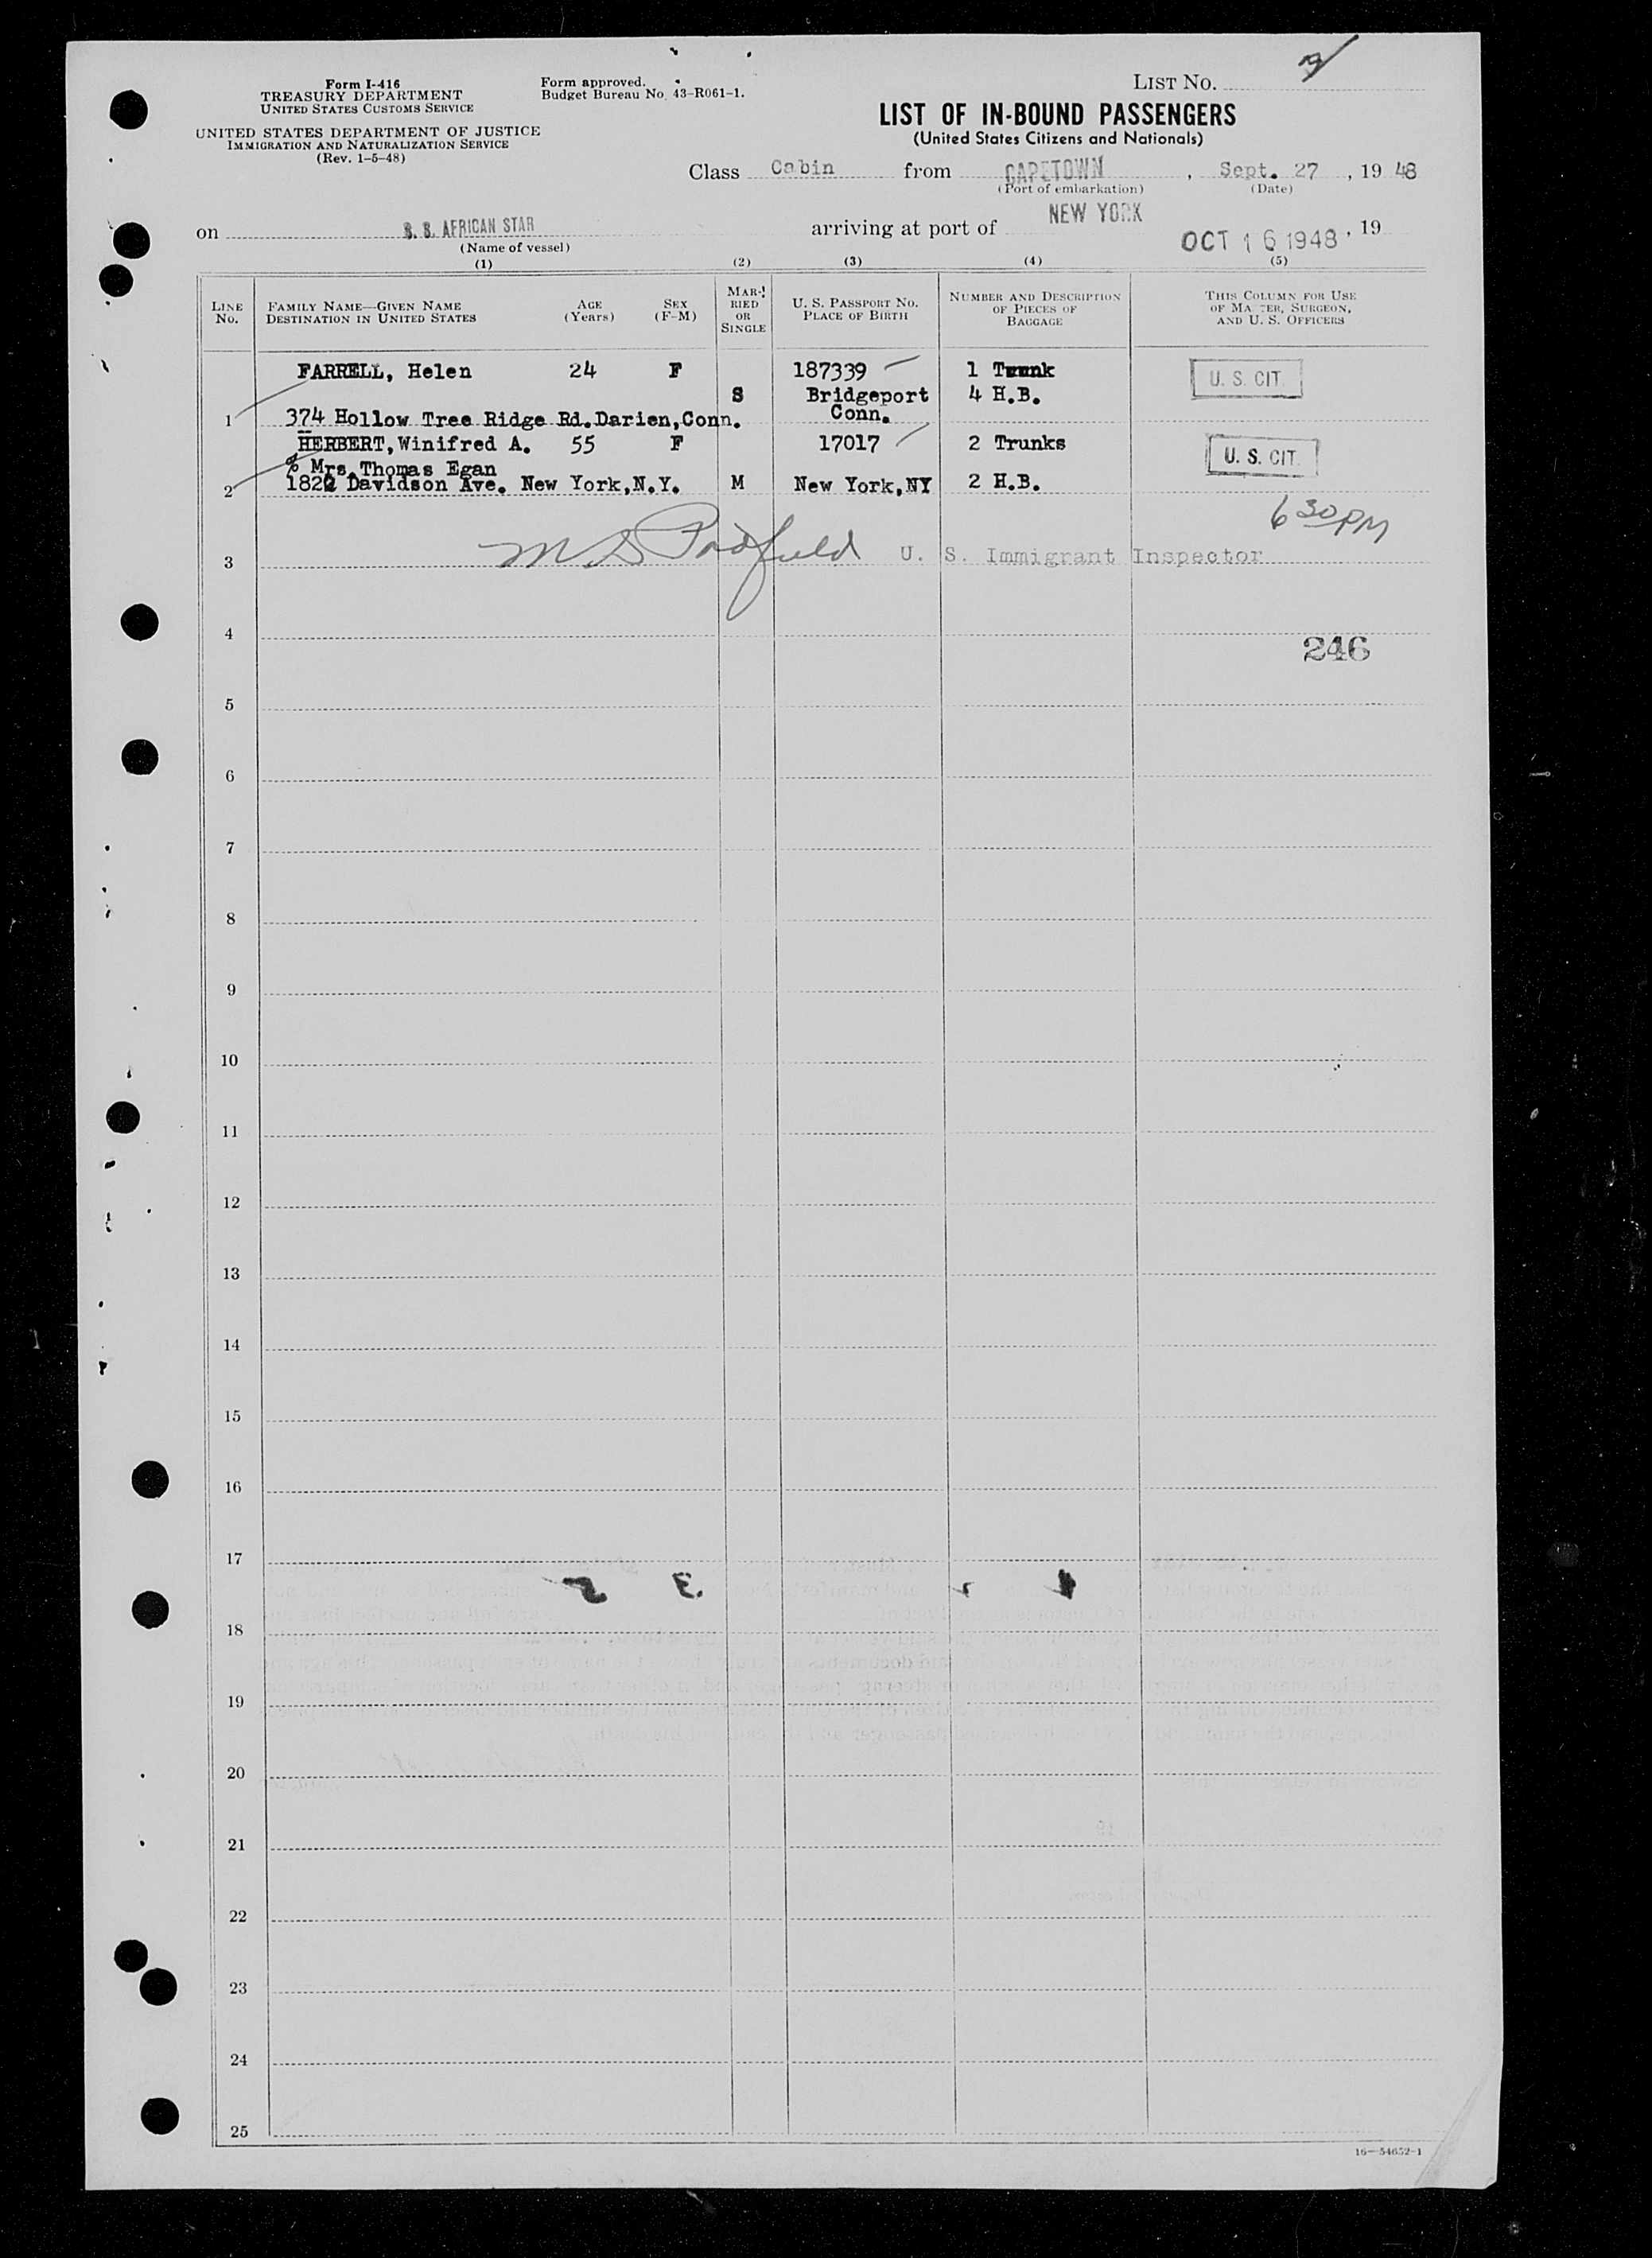 Form I-416
TREASURY DEPARTMENT
UNITED STATES CUSTOMS SERVICE
UNITED STATES DEPARTMENT OF JUSTICE
IMMIGRATION AND NATURALIZATION SERVICE
(Rev. 1-5-48)
Form approved.
Budget Bureau No. 43-R061-1.
LIST NO.
LIST OF IN-BOUND PASSENGERS
(United States Citizens and Nationals)
Class Cabin from CAPETOWN, Sept. 27, 19 48
(Port of embarkation) (Date)
on S. S. AFRICAN STAR arriving at port of NEW YORK OCT 16 1948, 19
(Name of vessel)
(1) (2) (3) (4) (5)
LINE NO. FAMILY NAME—GIVEN NAME DESTINATION IN UNITED STATES AGE (Years) SEX (F-M) MARRIED OR SINGLE U. S. PASSPORT NO. PLACE OF BIRTH NUMBER AND DESCRIPTION OF PIECES OF BAGGAGE THIS COLUMN FOR USE OF MASTER, SURGEON, AND U. S. OFFICERS
FARRELL, Helen 24 F 187339 1 Trunk U. S. CIT.
S Bridgeport 4 H.B.
1 374 Hollow Tree Ridge Rd.Darien,Conn. Conn.
HERBERT,Winifred A. 55 F 17017 2 Trunks U. S. CIT.
% Mrs.Thomas Egan
2 Davidson Ave. New York,N.Y. M New York,NY 2 H.B.
6 30 PM
3 U. S. Immigrant Inspector
4
246
5
6
7
8
9
10
11
12
13
14
15
16
17
18
19
20
21
22
23
24
25
16—54652-1